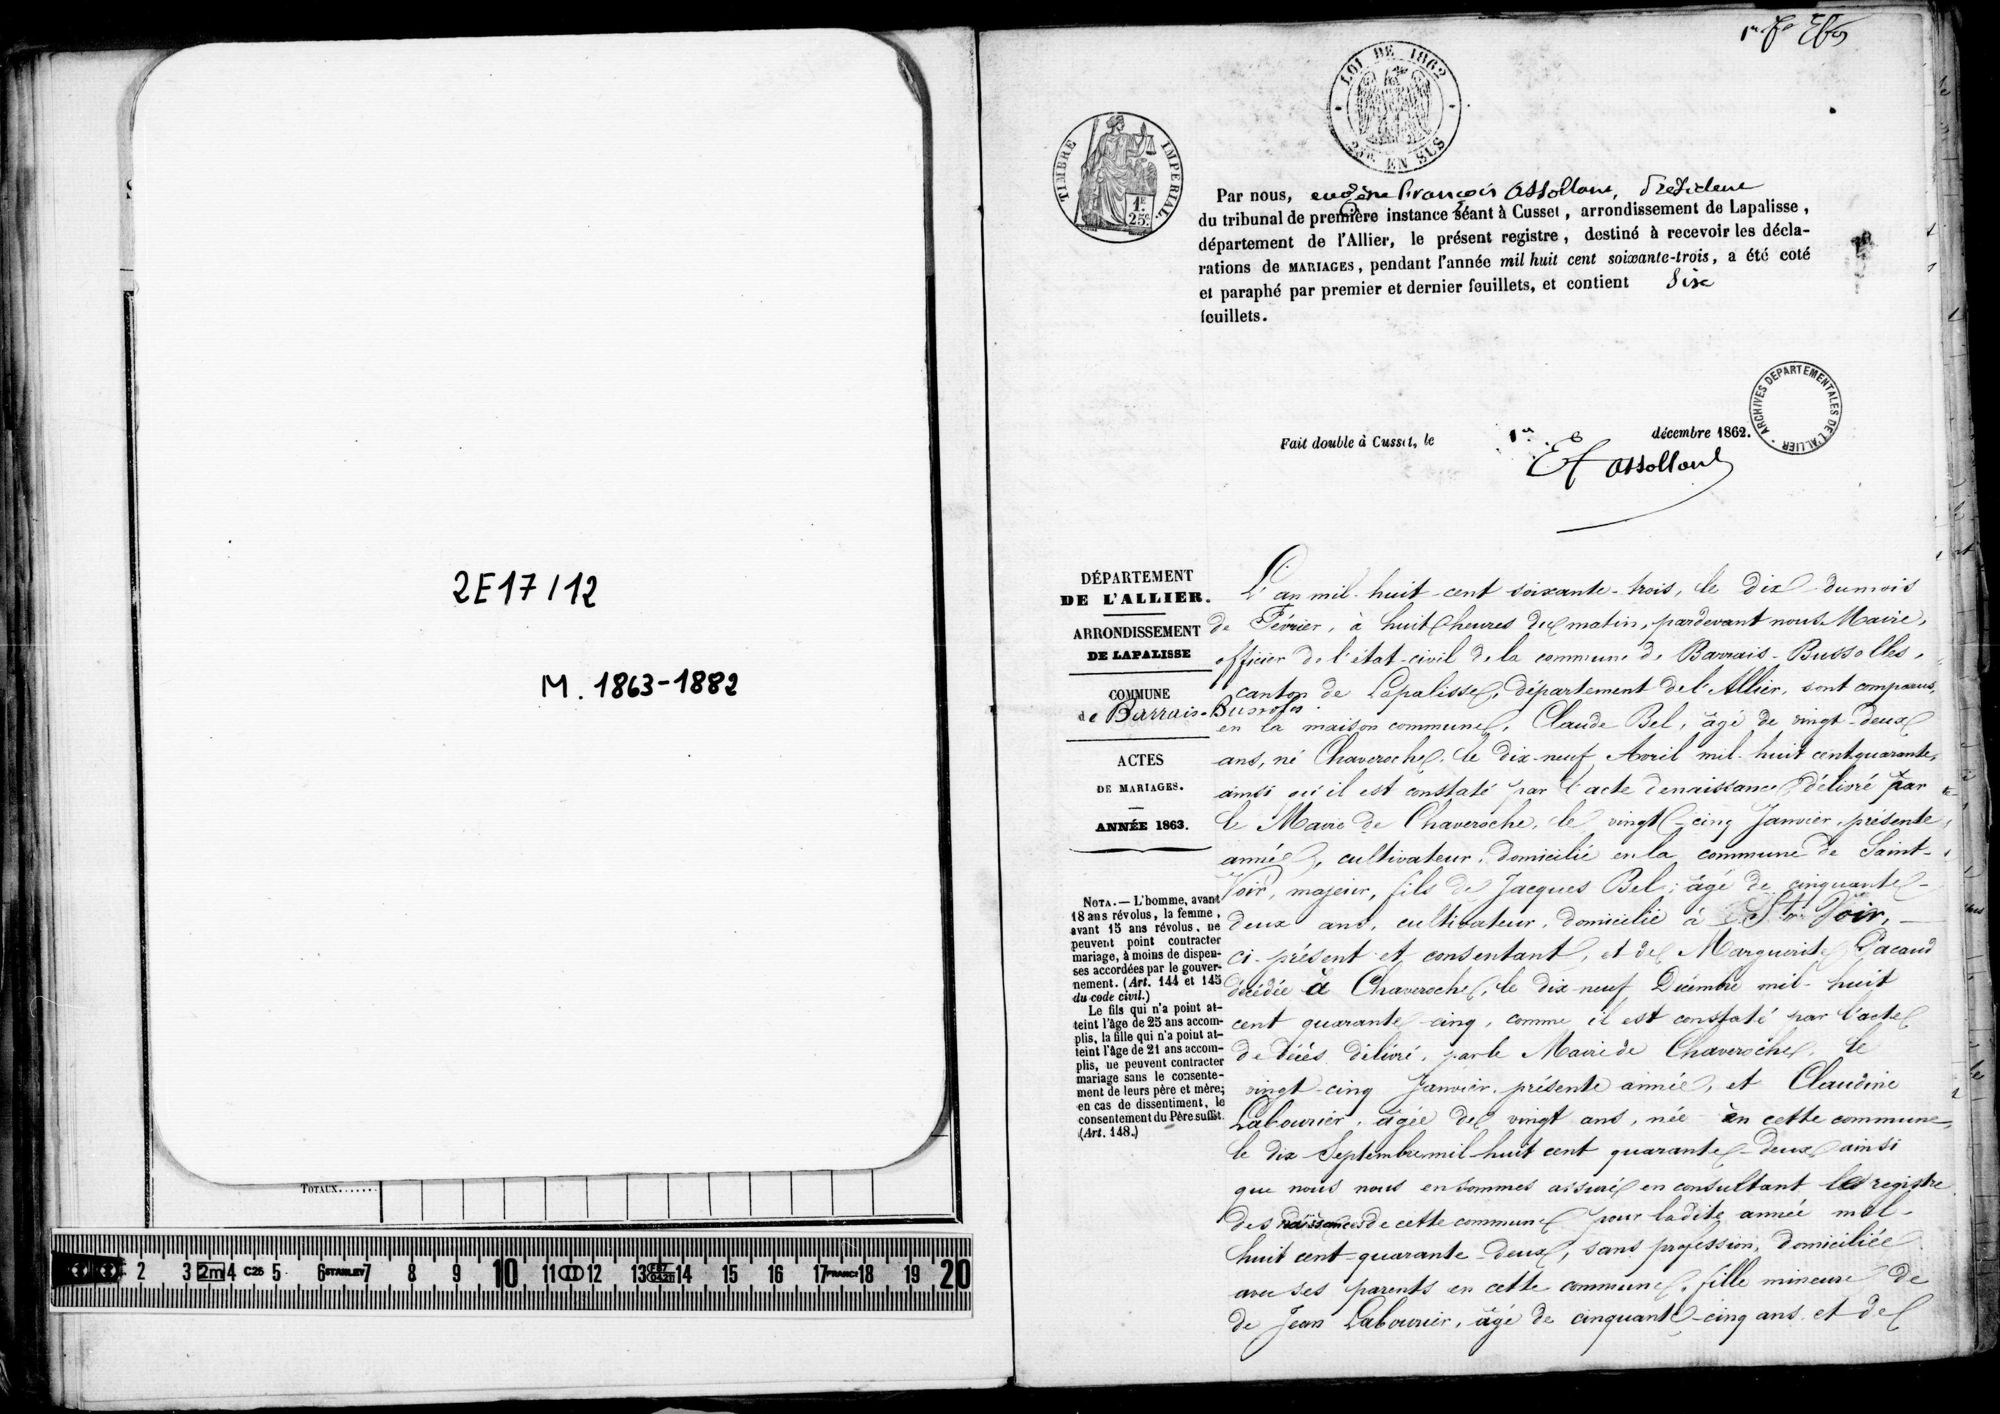 2E17/12
M. 1863-1882
TOTAUX......
2 3 2m 4 C26 5 6 STANLEY 7 8 9 10 11 12 13 14 15 16 17 FRANCE 18 19 20
LOI DE 1862
25c EN SUS
TIMBRE IMPERIAL.
1F
25c
Par nous, eugène françois Assollant, Président
du tribunal de première instance séant à Cusset, arrondissement de Lapalisse,
département de l'Allier, le présent registre, destiné à recevoir les décla-
rations de MARIAGES, pendant l'année mil huit cent soixante-trois, a été coté
et paraphé par premier et dernier feuillets, et contient Six
feuillets.
ARCHIVES DEPARTEMENTALES DE L'ALLIER
Fait double à Cusset, le 1er décembre 1862.
Ef Assollant
DÉPARTEMENT
DE L'ALLIER.
ARRONDISSEMENT
DE LAPALISSE
COMMUNE
de Barrais-Bussoles.
ACTES
DE MARIAGES.
ANNÉE 1863.
NOTA. — L'homme, avant
18 ans révolus, la femme,
avant 15 ans révolus, ne
peuvent point contracter
mariage, à moins de dispen-
ses accordées par le gouver-
nement. (Art. 144 et 145
du code civil.)
Le fils qui n'a point at-
teint l'âge de 25 ans accom-
plis, la fille qui n'a point at-
teint l'âge de 21 ans accom-
plis, ne peuvent contracter
mariage sans le consente-
ment de leurs père et mère;
en cas de dissentiment, le
consentement du Père suffit.
(Art. 148.)
L'an mil huit cent soixante-trois, le dix du mois
de Février, à huit heures du matin, pardevant nous Maire,
officier de l'état-civil de la commune de Barrais-Bussolles,
canton de Lapalisse, département de l'Allier, sont comparus,
en la maison commune, Claude Bel, âgé de vingt-deux
ans, né Chaveroche, le dix-neuf Avril mil huit cent quarante,
ainsi qu'il est constaté par l'acte de naissance délivré par
le Maire de Chaveroche, le vingt-cinq Janvier, présente
année, cultivateur, domicilié en la commune de Saint-
Voir, majeur, fils de Jacques Bel, âgé de cinquante-
deux ans, cultivateur, domicilié à St Voir,
ci-présent et consentant, et de Marguerite Pacaud
décédée à Chaveroche, le dix-neuf Décembre mil huit
cent quarante-cinq, comme il est constaté par l'acte
de décès délivré, par le Maire de Chaveroche, le
vingt-cinq Janvier, présente année, et Claudine
Labourier, âgée de vingt ans, née en cette commune,
le dix Septembre mil huit cent quarante-deux ainsi
que nous nous en sommes assuré en consultant les registre
des naissances de cette commune pour ladite année mil-
huit cent-quarante-deux, sans profession, domiciliée
avec ses parents en cette commune, fille mineure de
de Jean Labourier, âgé de cinquante-cinq ans et de